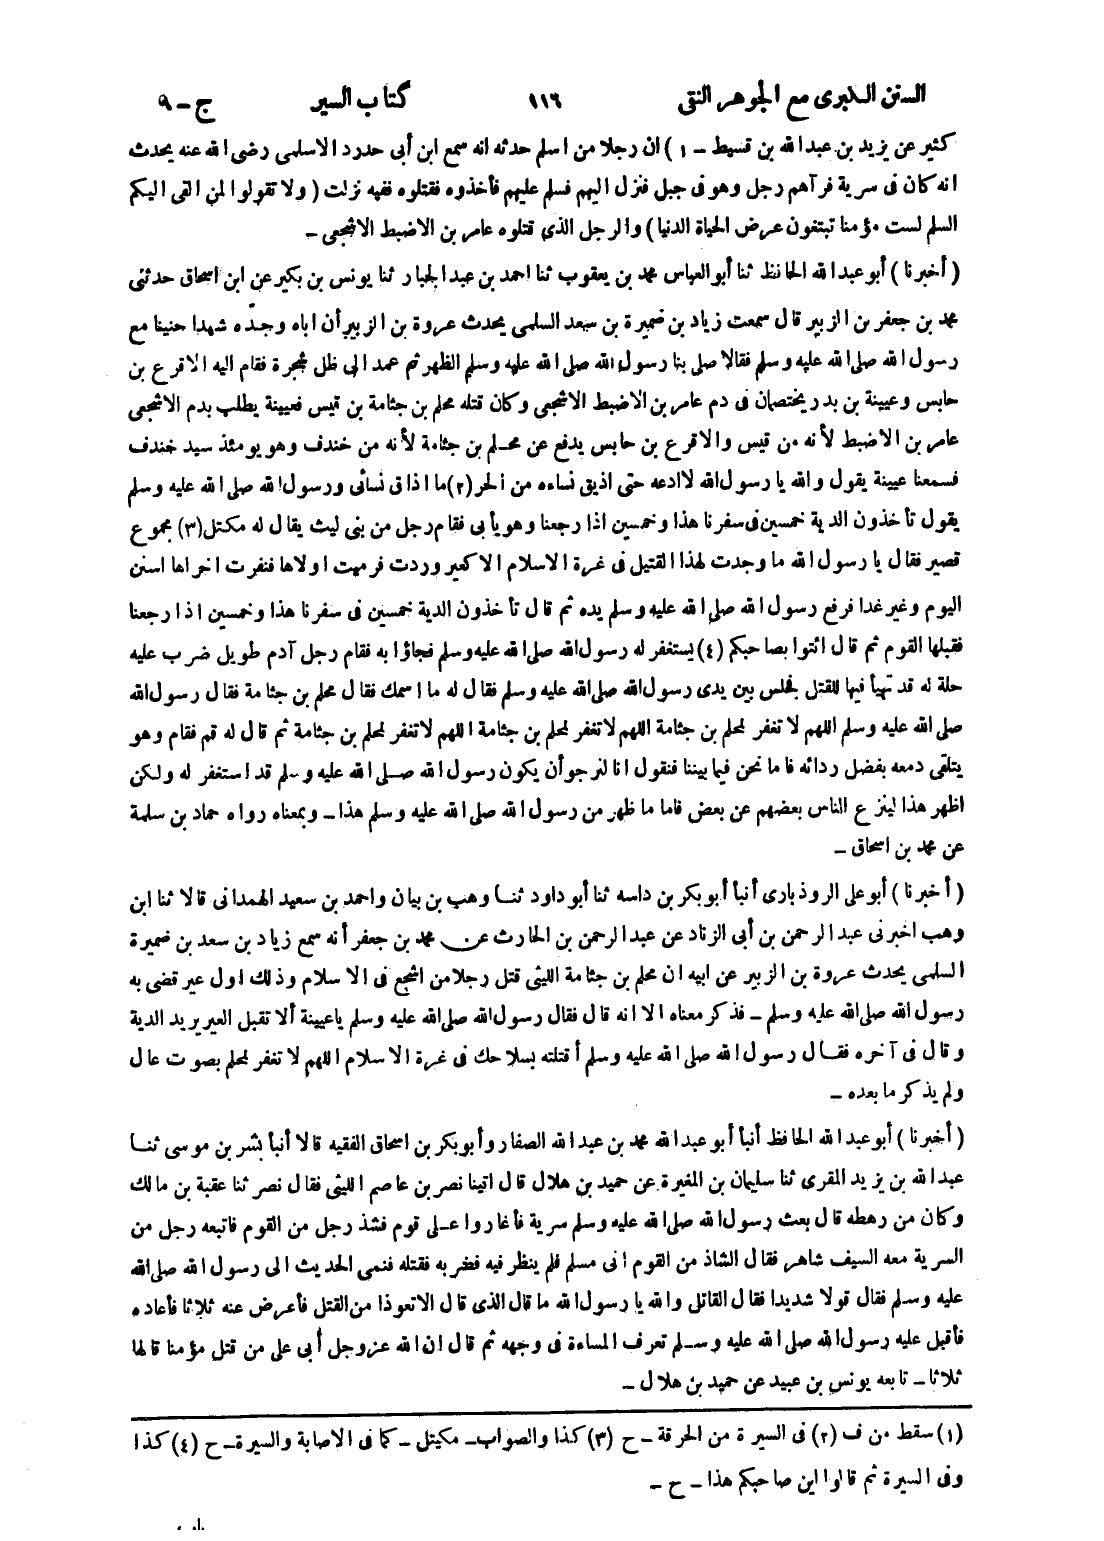 السنن الكبرى مع الجوهر النقى ١١٦ كتاب السير ج – ٩
كثير عن يزيد بن عبد الله بن قسيط – ١ ) ان رجلا من اسلم حدثه انه سمع ابن أبى حدرد الاسلمى رضى الله عنه يحدث
انه كان فى سرية فرآهم رجل وهو فى جبل فنزل اليهم فسلم عليهم فأخذوه فقتلوه ففيه نزلت ( ولا تقولوا لمن القى اليكم
السلم لست مؤمنا تبتغون عرض الحياة الدنيا ) والرجل الذى قتلوه عامر بن الاضبط الاشجعى –
( أخبرنا ) أبو عبد الله الحافظ ثنا أبو العباس محمد بن يعقوب ثنا احمد بن عبد الجبار ثنا يونس بن بكير عن ابن اسحاق حدثنى
محمد بن جعفر بن الزبير قال سمعت زياد بن ضميرة بن سعد السلمى يحدث عروة بن الزبير أن اباه وجدّه شهدا حنينا مع
رسول الله صلى الله عليه وسلم فقالا صلى بنا رسول الله صلى الله عليه وسلم الظهر ثم عمد الى ظل شجرة فقام اليه الاقرع بن
حابس وعيينة بن بدر يختصمان فى دم عامر بن الاضبط الاشجعى وكان قتله محلم بن جثامة بن قيس فعيينة يطلب بدم الاشجعى
عامر بن الاضبط لأنه من قيس والاقرع بن حابس يدفع عن محلم بن جثامة لأنه من خندف وهو يومئذ سيد خندف
فسمعنا عيينة يقول والله يا رسول الله لا ادعه حتى اذيق نساءه من الحر (٢) ما اذاق نسائى ورسول الله صلى الله عليه وسلم
يقول تأخذون الدية خمسين فى سفرنا هذا وخمسين اذا رجعنا وهو يأبى فقام رجل من بنى ليث يقال له مكتل (٣) مجموع
قصير فقال يا رسول الله ما وجدت لهذا القتيل فى غرة الاسلام الا كعير وردت فرميت اولاها فنفرت اخراها اسنن
اليوم وغير غدا فرفع رسول الله صلى الله عليه وسلم يده ثم قال تأخذون الدية خمسين فى سفرنا هذا وخمسين اذا رجعنا
فقبلها القوم ثم قال ائتوا بصاحبكم (٤) يستغفر له رسول الله صلى الله عليه وسلم فجاؤا به فقام رجل آدم طويل ضرب عليه
حلة له قد تهيأ فيها للقتل فجلس بين يدى رسول الله صلى الله عليه وسلم فقال له ما اسمك فقال محلم بن جثامة فقال رسول الله
صلى الله عليه وسلم اللهم لا تغفر لمحلم بن جثامة اللهم لا تغفر لمحلم بن جثامة اللهم لا تغفر لمحلم بن جثامة ثم قال له قم فقام وهو
يتلقى دمعه بفضل ردائه فاما نحن فيما بيننا فنقول انا لنرجو أن يكون رسول الله صلى الله عليه وسلم قد استغفر له ولكن
اظهر هذا لينزع الناس بعضهم عن بعض فاما ما ظهر من رسول الله صلى الله عليه وسلم هذا – وبمعناه رواه حماد بن سلمة
عن محمد بن اسحاق –
( أخبرنا ) أبو على الروذبارى أنبأ أبو بكر بن داسه ثنا أبو داود ثنا وهب بن بيان واحمد بن سعيد الهمدانى قالا ثنا ابن
وهب اخبرنى عبد الرحمن بن أبى الزناد عن عبد الرحمن بن الحارث عن محمد بن جعفر أنه سمع زياد بن سعد بن ضميرة
السلمى يحدث عروة بن الزبير عن ابيه ان محلم بن جثامة الليثى قتل رجلا من اشجع فى الاسلام وذلك اول عير قضى به
رسول الله صلى الله عليه وسلم – فذكر معناه الا انه قال فقال رسول الله صلى الله عليه وسلم يا عيينة ألا تقبل العير يريد الدية
وقال فى آخره فقال رسول الله صلى الله عليه وسلم أقتلته بسلاحك فى غرة الاسلام اللهم لا تغفر لمحلم بصوت عال
ولم يذكر ما بعده –
( أخبرنا ) أبو عبد الله الحافظ أنبأ أبو عبد الله محمد بن عبد الله الصفار وأبو بكر بن اسحاق الفقيه قالا أنبأ بشر بن موسى ثنا
عبد الله بن يزيد المقرى ثنا سليمان بن المغيرة عن حميد بن هلال قال اتينا نصر بن عاصم الليثى فقال نصر ثنا عقبة بن مالك
وكان من رهطه قال بعث رسول الله صلى الله عليه وسلم سرية فأغاروا على قوم فشذ رجل من القوم فاتبعه رجل من
السرية معه السيف شاهر فقال الشاذ من القوم انى مسلم فلم ينظر فيه فضربه فقتله فنمى الحديث الى رسول الله صلى الله
عليه وسلم فقال قولا شديدا فقال القاتل والله يا رسول الله ما قال الذى قال الا تعوذا من القتل فأعرض عنه ثلاثا فأعاده
فأقبل عليه رسول الله صلى الله عليه وسلم تعرف المساءة فى وجهه ثم قال ان الله عز وجل أبى على من قتل مؤمنا قالها
ثلاثا – تابعه يونس بن عبيد عن حميد بن هلال –
(١) سقط من ف (٢) فى السيرة من الحرقة – ح (٣) كذا والصواب – مكيتل – كما فى الاصابة والسيرة – ح (٤) كذا
وفى السيرة ثم قالوا اين صاحبكم هذا – ح –
باب